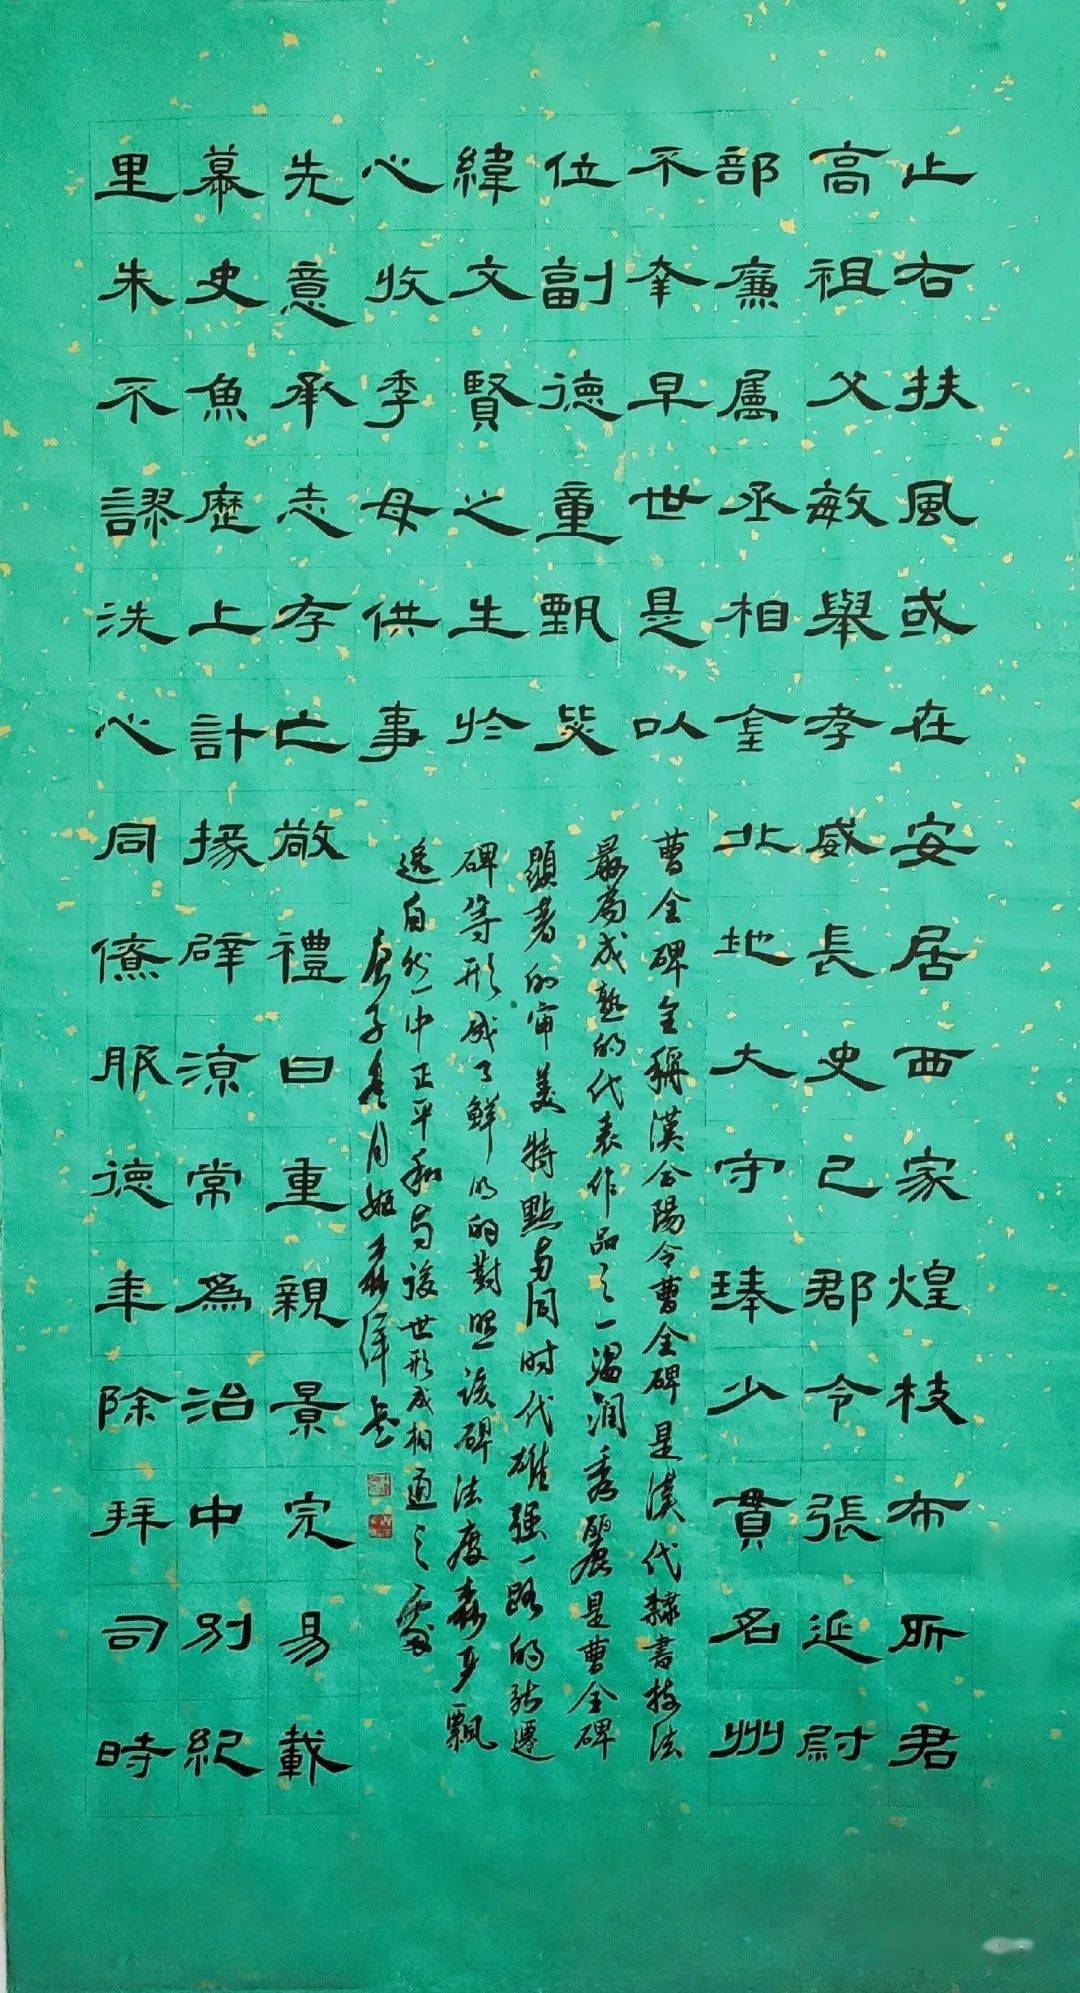 止右扶風或在安居西家煌枝布所君
高祖父敏舉孝威長史己郡令張延尉
部廉属丞相金北地大守瑧少貫名州
不幸早世是以
位副德童甄毖
緯文賢之生於
心收季母供事
先意承志存亡敬禮曰重親景完易載
幕史魚歷上計掾辟涼常為治中別紀
里朱不謬洗心同僚服德年除拜司時
曹全碑全稱漢合陽令曹全碑是漢代隸書技法
最為成熟的代表作品之一温润秀麗是曹全碑
顯著的审美特點与同时代雄强一路的張遷
碑等形成了鮮明的對照該碑法度森严飄
逸自然中正平和与後世形成相通之處
庚子冬月姬森洋書